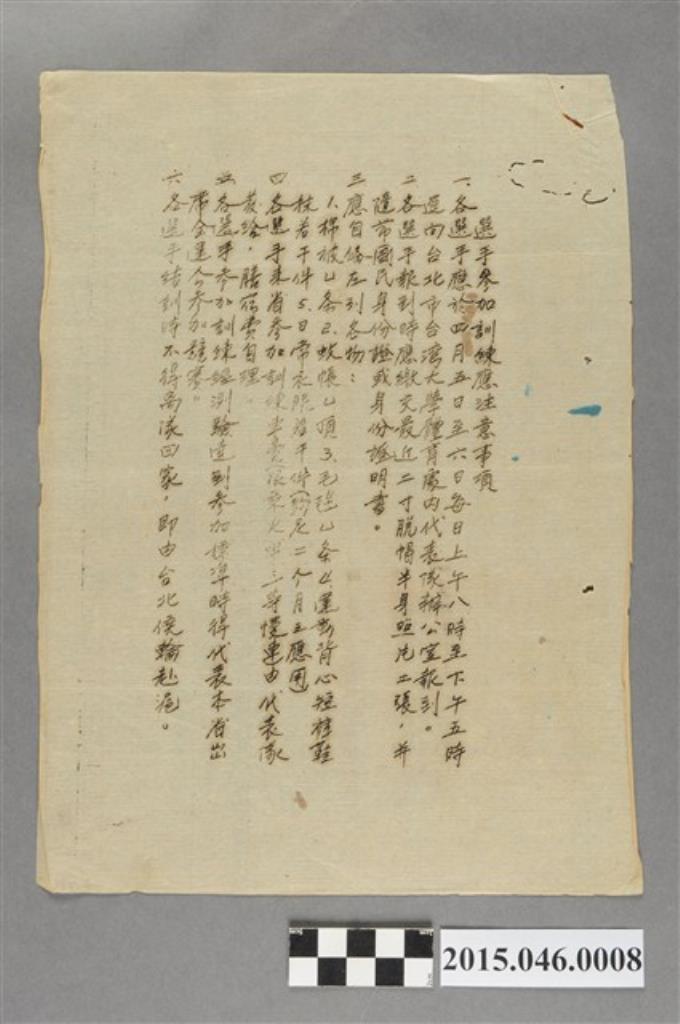 選手參加訓練應注意事項
一、各選手應於四月五日至六日每日上午八時至下午五時
逕向台北市台灣大學體育處內代表隊辦公室報到。
二各選手報到時應繳交最近二寸脫帽半身照片二張，并
隨帶國民身份證或身份證明書。
三應自備左列各物：
1.棉被一条2.蚊帳一頂3.毛毯一条4.運動背心短褲鞋
袜若干件5.日常衣服若干件(夠足二个月之應用)
四各選手來省參加訓練坐費限乘火車三等慢車由代表隊
發给，膳宿費自理。
五各選手參加訓練經測驗達到參加標準時得代表本省出
席全運会參加競賽。
六各選手結訓時不得离隊回家，即由台北僥輪赴滬。
2015.046.0008